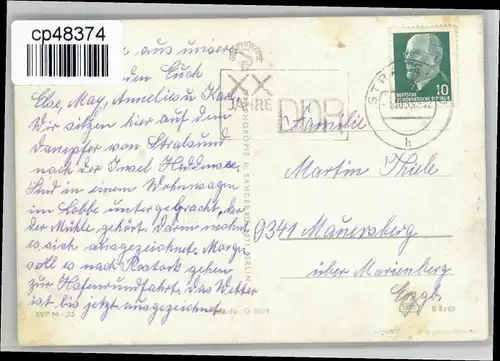 cp48374
aus unserer
senden Euch
Else, May, Anneliese u. Karl
Wir sitzen hier auf dem
Dampfer von Stralsund
nach der Insel Hiddensee.
Sind in einem Wohnwagen
in Lobbe untergebracht, der
der Mühle gehört. Darin wohnt
es sich ausgezeichnet. Morgen
soll es nach Rostock gehen
zur Hafenrundfahrt. Das Wetter
ist bis jetzt ausgezeichnet.
XX
JAHRE
DDR
DEUTSCHE
DEMOKRATISCHE REPUBLIK
10
h
Familie
Martin Thiele
9341 Mauersberg
über Marienberg
Erzgb.
B 8/69